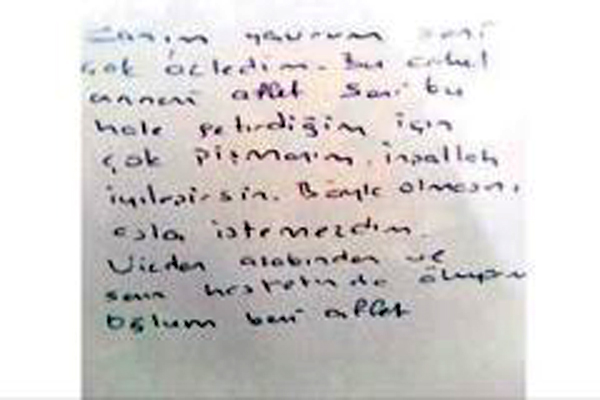 Canım yavrum seni
çok özledim. Bu cahil
anneni affet Seni bu
hale getirdiğim için
çok Pişmanım. inşallah
iyileşirsin. Böyle olmasını
asla istemezdim.
Vicdan azabından ve
senin hasretinde
Oğlum beni affet